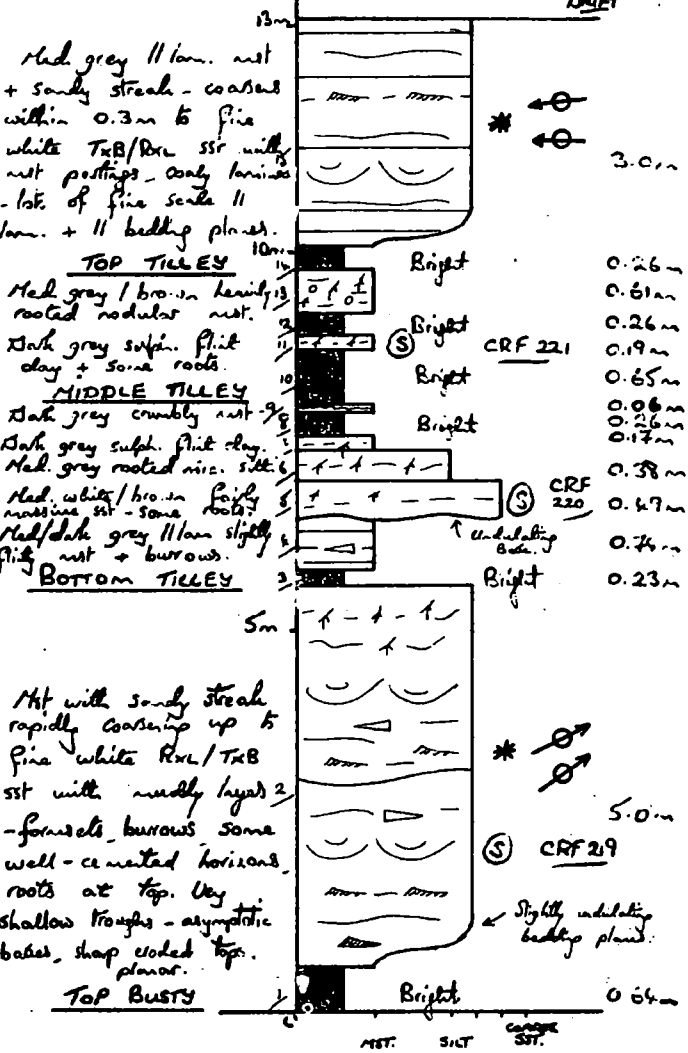 DRIFT
13m
Med. grey // lam. mst
+ sandy streak - coarsens
within 0.3m to fine
white TxB/RxL sst with
mst partings - coaly laminae
- lots of fine scale //
lam. + // bedding planes.
15
3.0m
10m
TOP TILLEY
14
Bright
0.26m
Med. grey / brown heavily
rooted nodular mst.
13
0.61m
12
Bright
0.26m
Dark grey sulph. flint
clay + some roots.
11
S
CRF 221
0.19m
10
Bright
0.65m
MIDDLE TILLEY
Dark grey crumbly mst - 9
0.06m
8
Bright
0.26m
Dark grey sulph. flint clay.
0.17m
Med. grey rooted mic. silt. 6
0.38m
Med. white/brown fairly
massive sst - some roots.
5
S
CRF
220
0.47m
Med/dark grey //lam slightly
silty mst + burrows.
4
Undulating
Base.
0.74m
BOTTOM TILLEY
3
Bright
0.23m
5m
Mst with sandy streak
rapidly coarsening up to
fine white RxL/TxB
sst with muddy layers
- foresets, burrows, some
well-cemented horizons,
roots at top. Very
shallow troughs - asymptotic
bases, sharp eroded tops.
planar.
2
5.0m
S
CRF 219
Slightly undulating
bedding planes.
TOP BUSTY
1
Bright
0.64m
MST.
SILT
COARSE
SST.